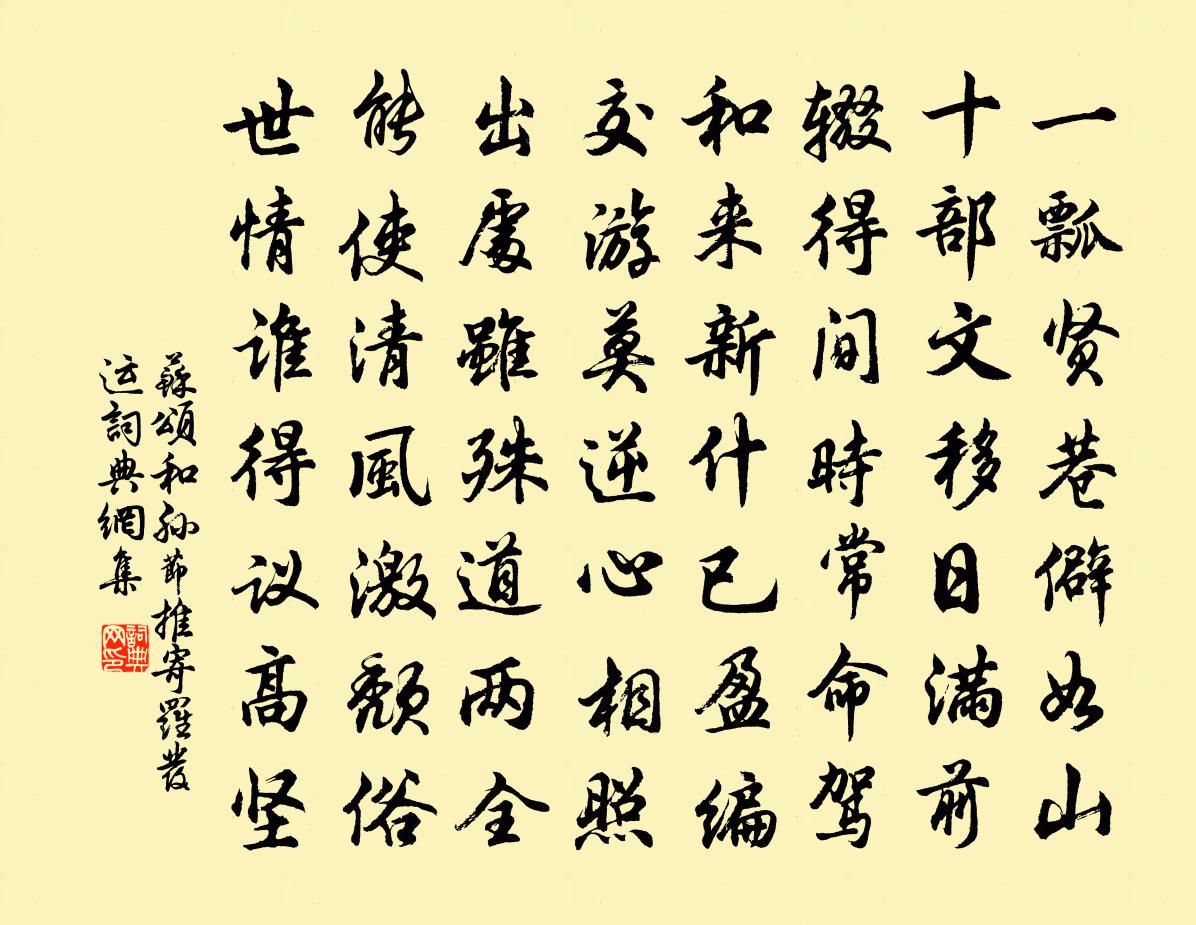 一瓢贤巷僻如山
十部文移日满前
辍得间時常命驾
和来新什已盈编
交游莫逆心相照
出處雖殊道两全
能使清風激颓俗
世情谁得议高坚
蘇頌和孙节推寄羅發
运詞典網集
詞典网印